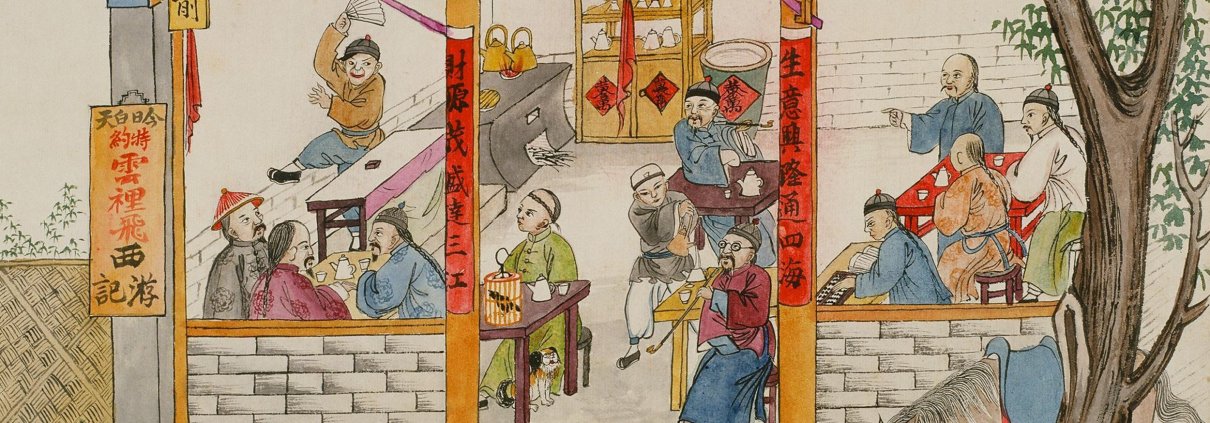 今日白天
特約
雲裡飛
西
游記
生意興隆通四海
財源茂盛達三江